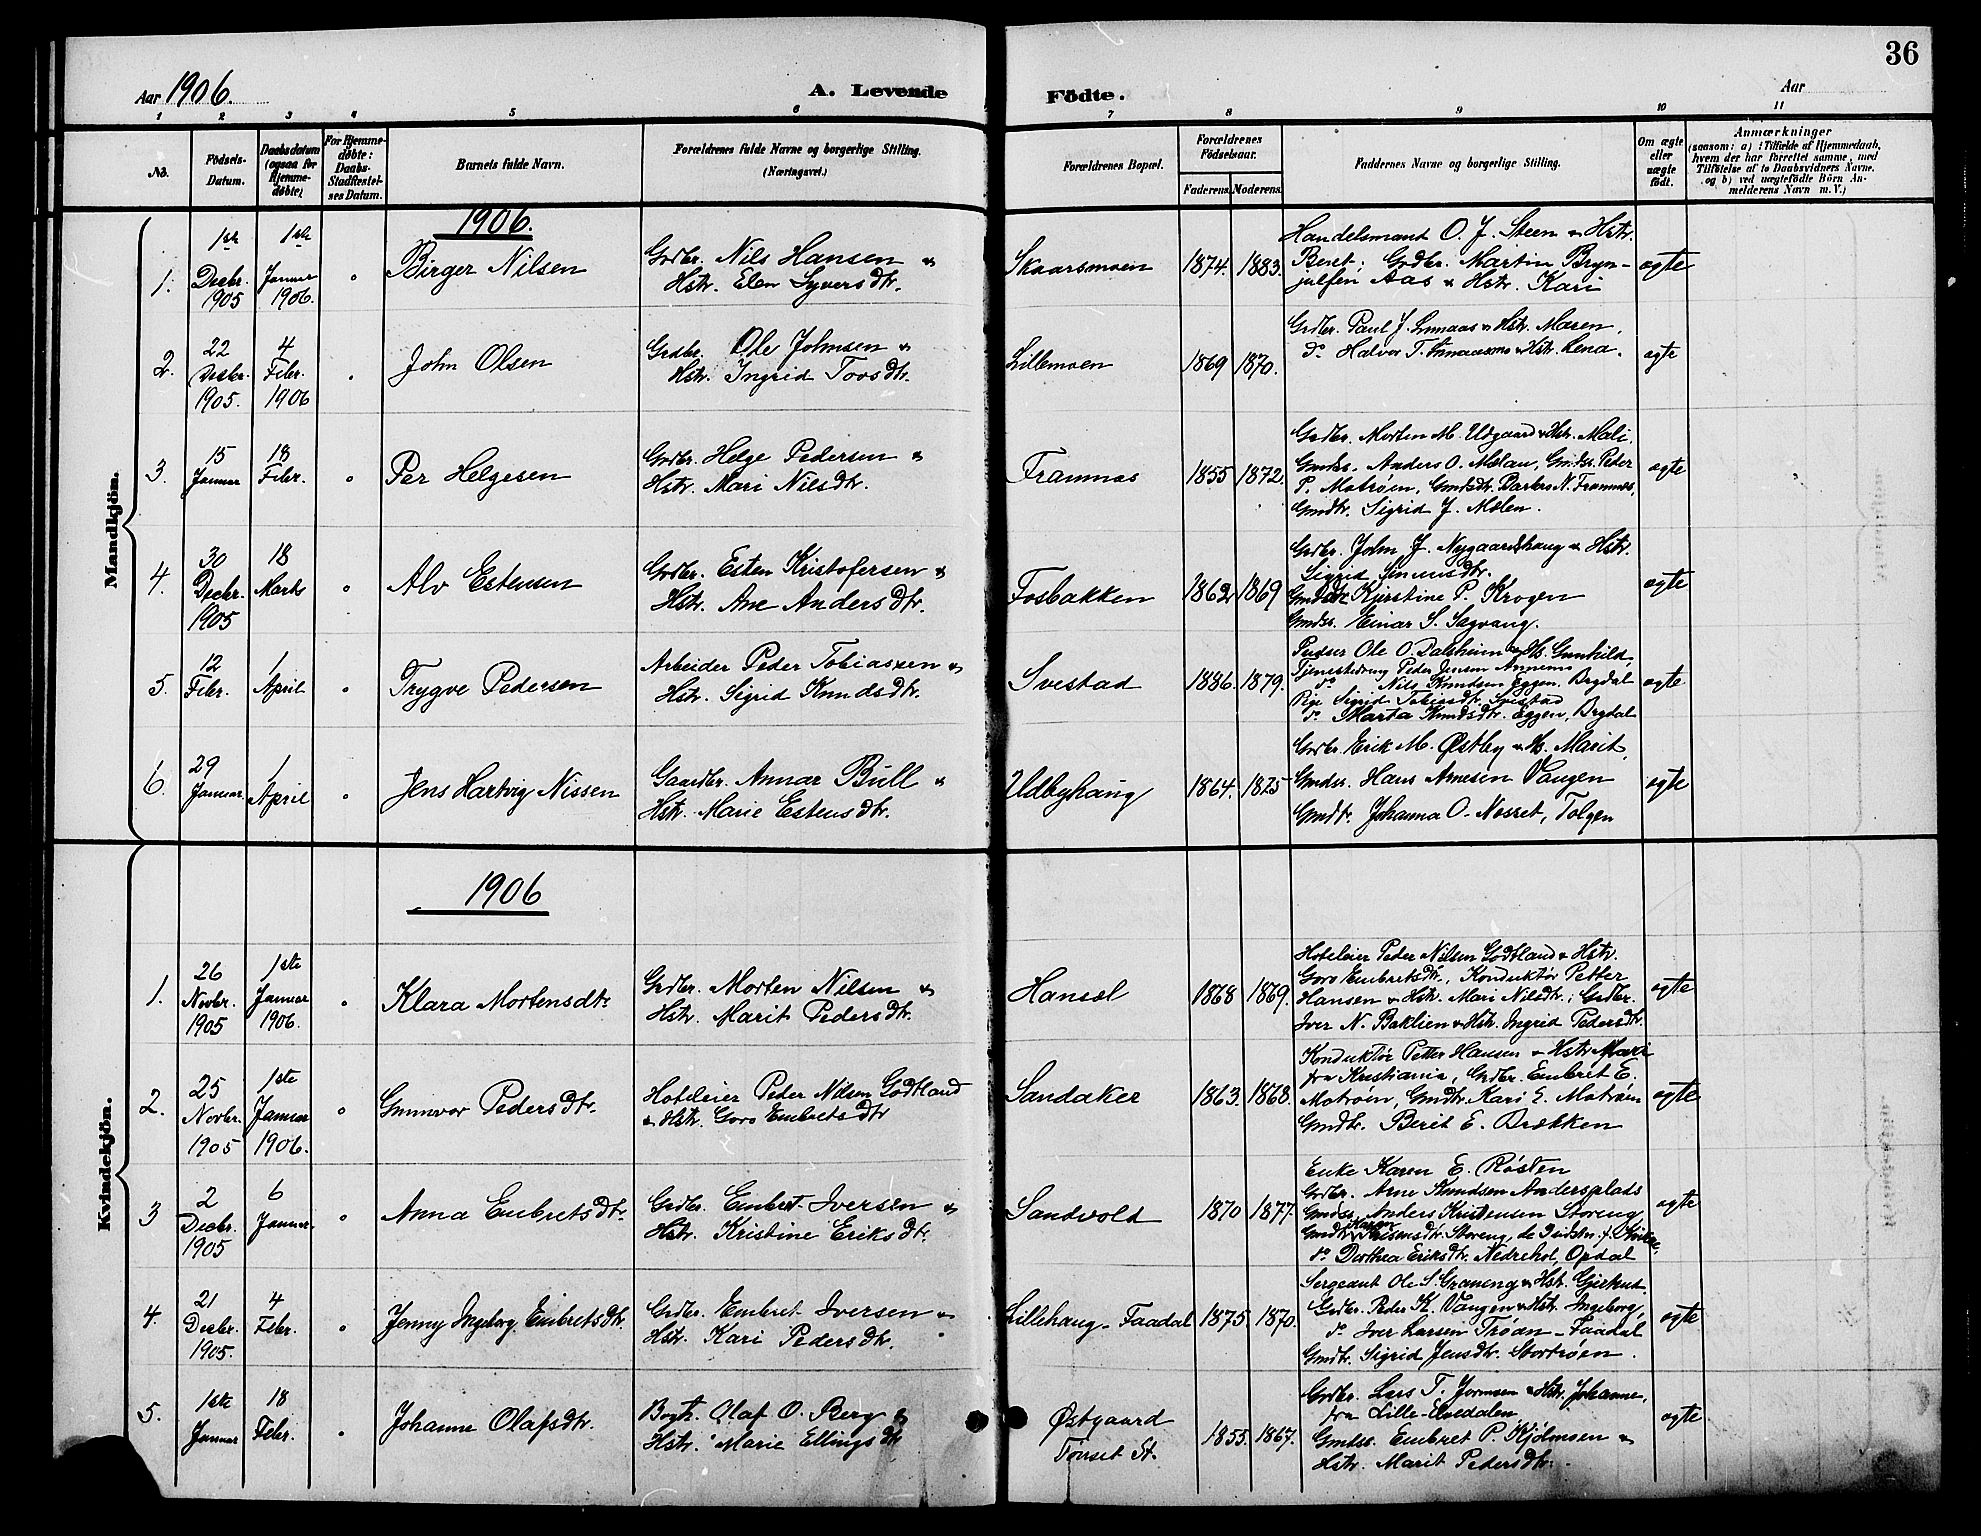 36
Aar 1906.
A. Levende Födte.
Aar
1 2 3 4 5 6 7 8 9 10 11
No.
Födsels-Datum.
Daabsdatum (ogsaa for Hjemmedøbte)
For Hjemmedøbte: Daabs-Stadfæstelses Datum.
Barnets fulde Navn.
Forældrenes fulde Navne og borgerlige Stilling. (Næringsvei.)
Forældrenes Bopæl.
Forældrenes Fødselsaar.
Faderens. Moderens.
Faddernes Navne og borgerlige Stilling.
Om ægte eller uægte født.
Anmærkninger
(saasom: a) i Tilfælde af Hjemmedaab, hvem der har forrettet samme, med Tilføielse af to Daabsvidners Navne, og b) ved uægtefødte Börn Anmelderens Navn m. V.)
Mandkjön.
1906.
1. 1ste Decbr. 1905
1ste Januar 1906.
Birger Nilsen
Grdbr. Nils Hansen &
Hstr. Elen Syversdtr.
Skaarsmoen
1874. 1883.
Handelsmand O. J. Steen & Hstr.
Beret; Grdbr. Martin Bryn-
julfen Aas & Hstr. Kari
ægte
2. 22 Decbr. 1905.
4 Febr. 1906
John Olsen
Grdbr. Ole Johnsen &
Hstr. Ingrid Torsdtr.
Lillemoen
1869 1870.
Grdbr. Paul J. & Hstr. Maren.
do Halvor T. & Hstr. Lena.
ægte
3. 15 Januar
18 Febr.
Per Helgesen
Grdbr. Helge Pedersen &
Hstr. Mari Nilsdtr.
Framnæs
1855 1872.
Grdbr. Morten M. Udgaard & Hstr. Mali.
Gmdss. Anders O. Mælan, Gmdss. Peder
P. Motrøen, Gmdstr. N. Framnæs,
Gmdtr. Sigrid J. Mælen.
ægte
4. 30 Decbr. 1905
18 Marts
Alv Estensen
Grdbr. Esten Kristofersen &
Hstr. Ane Andersdtr.
Fosbakken
1862 1869
Grdbr. John J. Nygaardshaug & Hstr.
Sigrid Simensdtr.
Gmdstr. Kirstine P. Krogen
Gmdss. Einar S. Sagvang.
ægte
5. 12 Febr.
1 April
Trygve Pedersen
Arbeider Peder Tobiassen &
Hstr. Sigrid Knudsdtr.
Svestad
1886. 1879.
Pudser Ole O. Dalsheim & H. Gunhild,
Tjenestedreng Peder Jensen
do Nils Knudsen Eggen. Brydal
Pige Sigrid Tobiasdtr. Svestad
do Marta Knudsdtr. Eggen, Brydal
ægte
6. 29 Januar
1 April
Jens Hartvig Nissen
Gaardbr. Annar Bull &
Hstr. Marie Estensdtr.
Udbyhaug
1864. 1875
Grdbr. Erik M. Østby & H. Marit,
Gmdss. Hans Arnesen Vangen
Gmdtr. Johanna O. Nesset, Tolgen
ægte
Kvindekjön.
1906
1. 26 Novbr. 1905
1ste Januar 1906.
Klara Mortensdtr
Grdbr. Morten Nilsen &
Hstr. Marit Pedersdtr.
Hanesl
1868 1869.
Hoteleier Peder Nilsen Godtland & Hstr.
Goro Embretsdtr, Konduktør Petter
Hansen & Hstr. Mari Nilsdtr; Grdbr.
Iver N. Baklien & Hstr. Ingrid Pedersdtr.
ægte
2. 25 Novbr. 1905
1ste Januar 1906.
Gunnvor Pedersdtr.
Hoteleier Peder Nilsen Godtland
& Hstr. Goro Embretsdtr
Sandaker
1863. 1868.
Konduktør Petter Hansen & Hstr Mari
fra Kristiania, Grdbr. Embret E.
Motrøen, Gmdtr. Kari E. Motrøen
Gmdtr. Berit E. Brækken
ægte
3 2 Decbr. 1905
6 Januar
Anna Embretsdtr.
Grdbr. Embret Iversen &
Hstr. Kristine Eriksdtr.
Sandvold
1870 1877.
Enke Karen E. Røsten
Grdbr. Arne Knudsen Andersplads
Gmdss. Anders Kristensen Storeng
Gmdtr. Karen Storeng,
do Dorthea Eriksdtr. Nedrehol, Opdal
ægte
4. 21 Decbr. 1905.
4 Febr.
Jenny Ingeborg Embretsdtr.
Grdbr. Embret Iversen &
Hstr. Kari Pedersdtr.
Lillehaug - Faadal
1875. 1870.
Sergeant Ole S. Græneng & Hst. Gjertrud
Grdbr. Peder K. Vangen & Hstr. Ingeborg,
do Iver Larsen Trøan - Faadal
Gmdtr. Sigrid Jensdtr. Stortrøen.
ægte
5. 1ste Januar
18 Febr.
Johanne Olafsdtr.
Bogh. Olaf O. Berg &
Hstr. Marie Ellingsdtr
Østgaard
Tønset St.
1855. 1867.
Grdbr. Lars T. Jormsen & Hstr. Johanne,
fra Lille-Elvedalen
Gmdss. Embret P. Kjølmoen &
Hstr. Marit Pedersdtr.
ægte